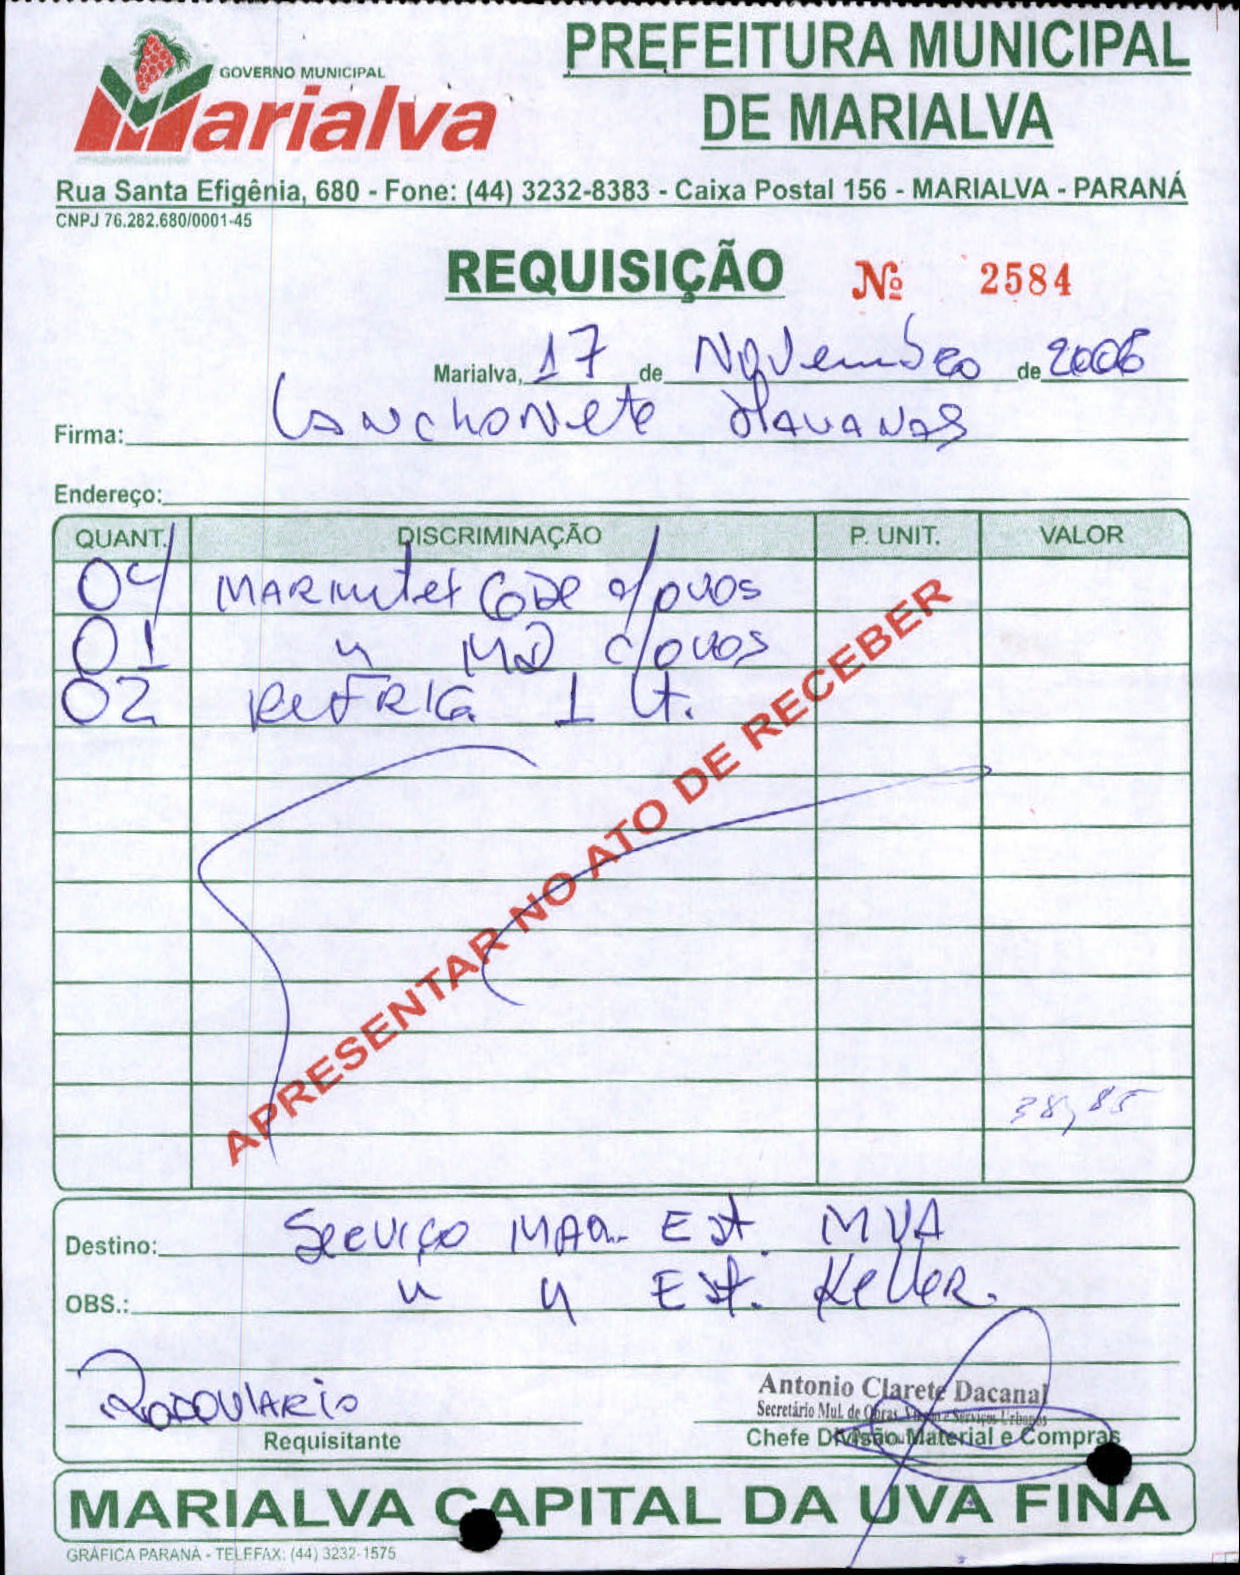 GOVERNO MUNICIPAL
Marialva
PREFEITURA MUNICIPAL
DE MARIALVA
Rua Santa Efigênia, 680 - Fone: (44) 3232-8383 - Caixa Postal 156 - MARIALVA - PARANÁ
CNPJ 76.282.680/0001-45
REQUISIÇÃO Nº 2584
Marialva, 17 de Novembro de 2006
Firma: Lanchonete Havanas
Endereço:
QUANT. DISCRIMINAÇÃO P. UNIT. VALOR
04 MARMitex c/ovos
01 " MD c/ovos
02 REFRIG. 1 Lt.
APRESENTAR NO ATO DE RECEBER
38,85
Destino: Serviço MAQ. Est. MVA
OBS.: " " Est. Keller.
RODOVIARIO
Antonio Clarete Dacanal
Secretário Mul. de Obras, e Serviços Urbanos
Requisitante Chefe Divisão Material e Compras
MARIALVA CAPITAL DA UVA FINA
GRÁFICA PARANÁ - TELEFAX: (44) 3232-1575